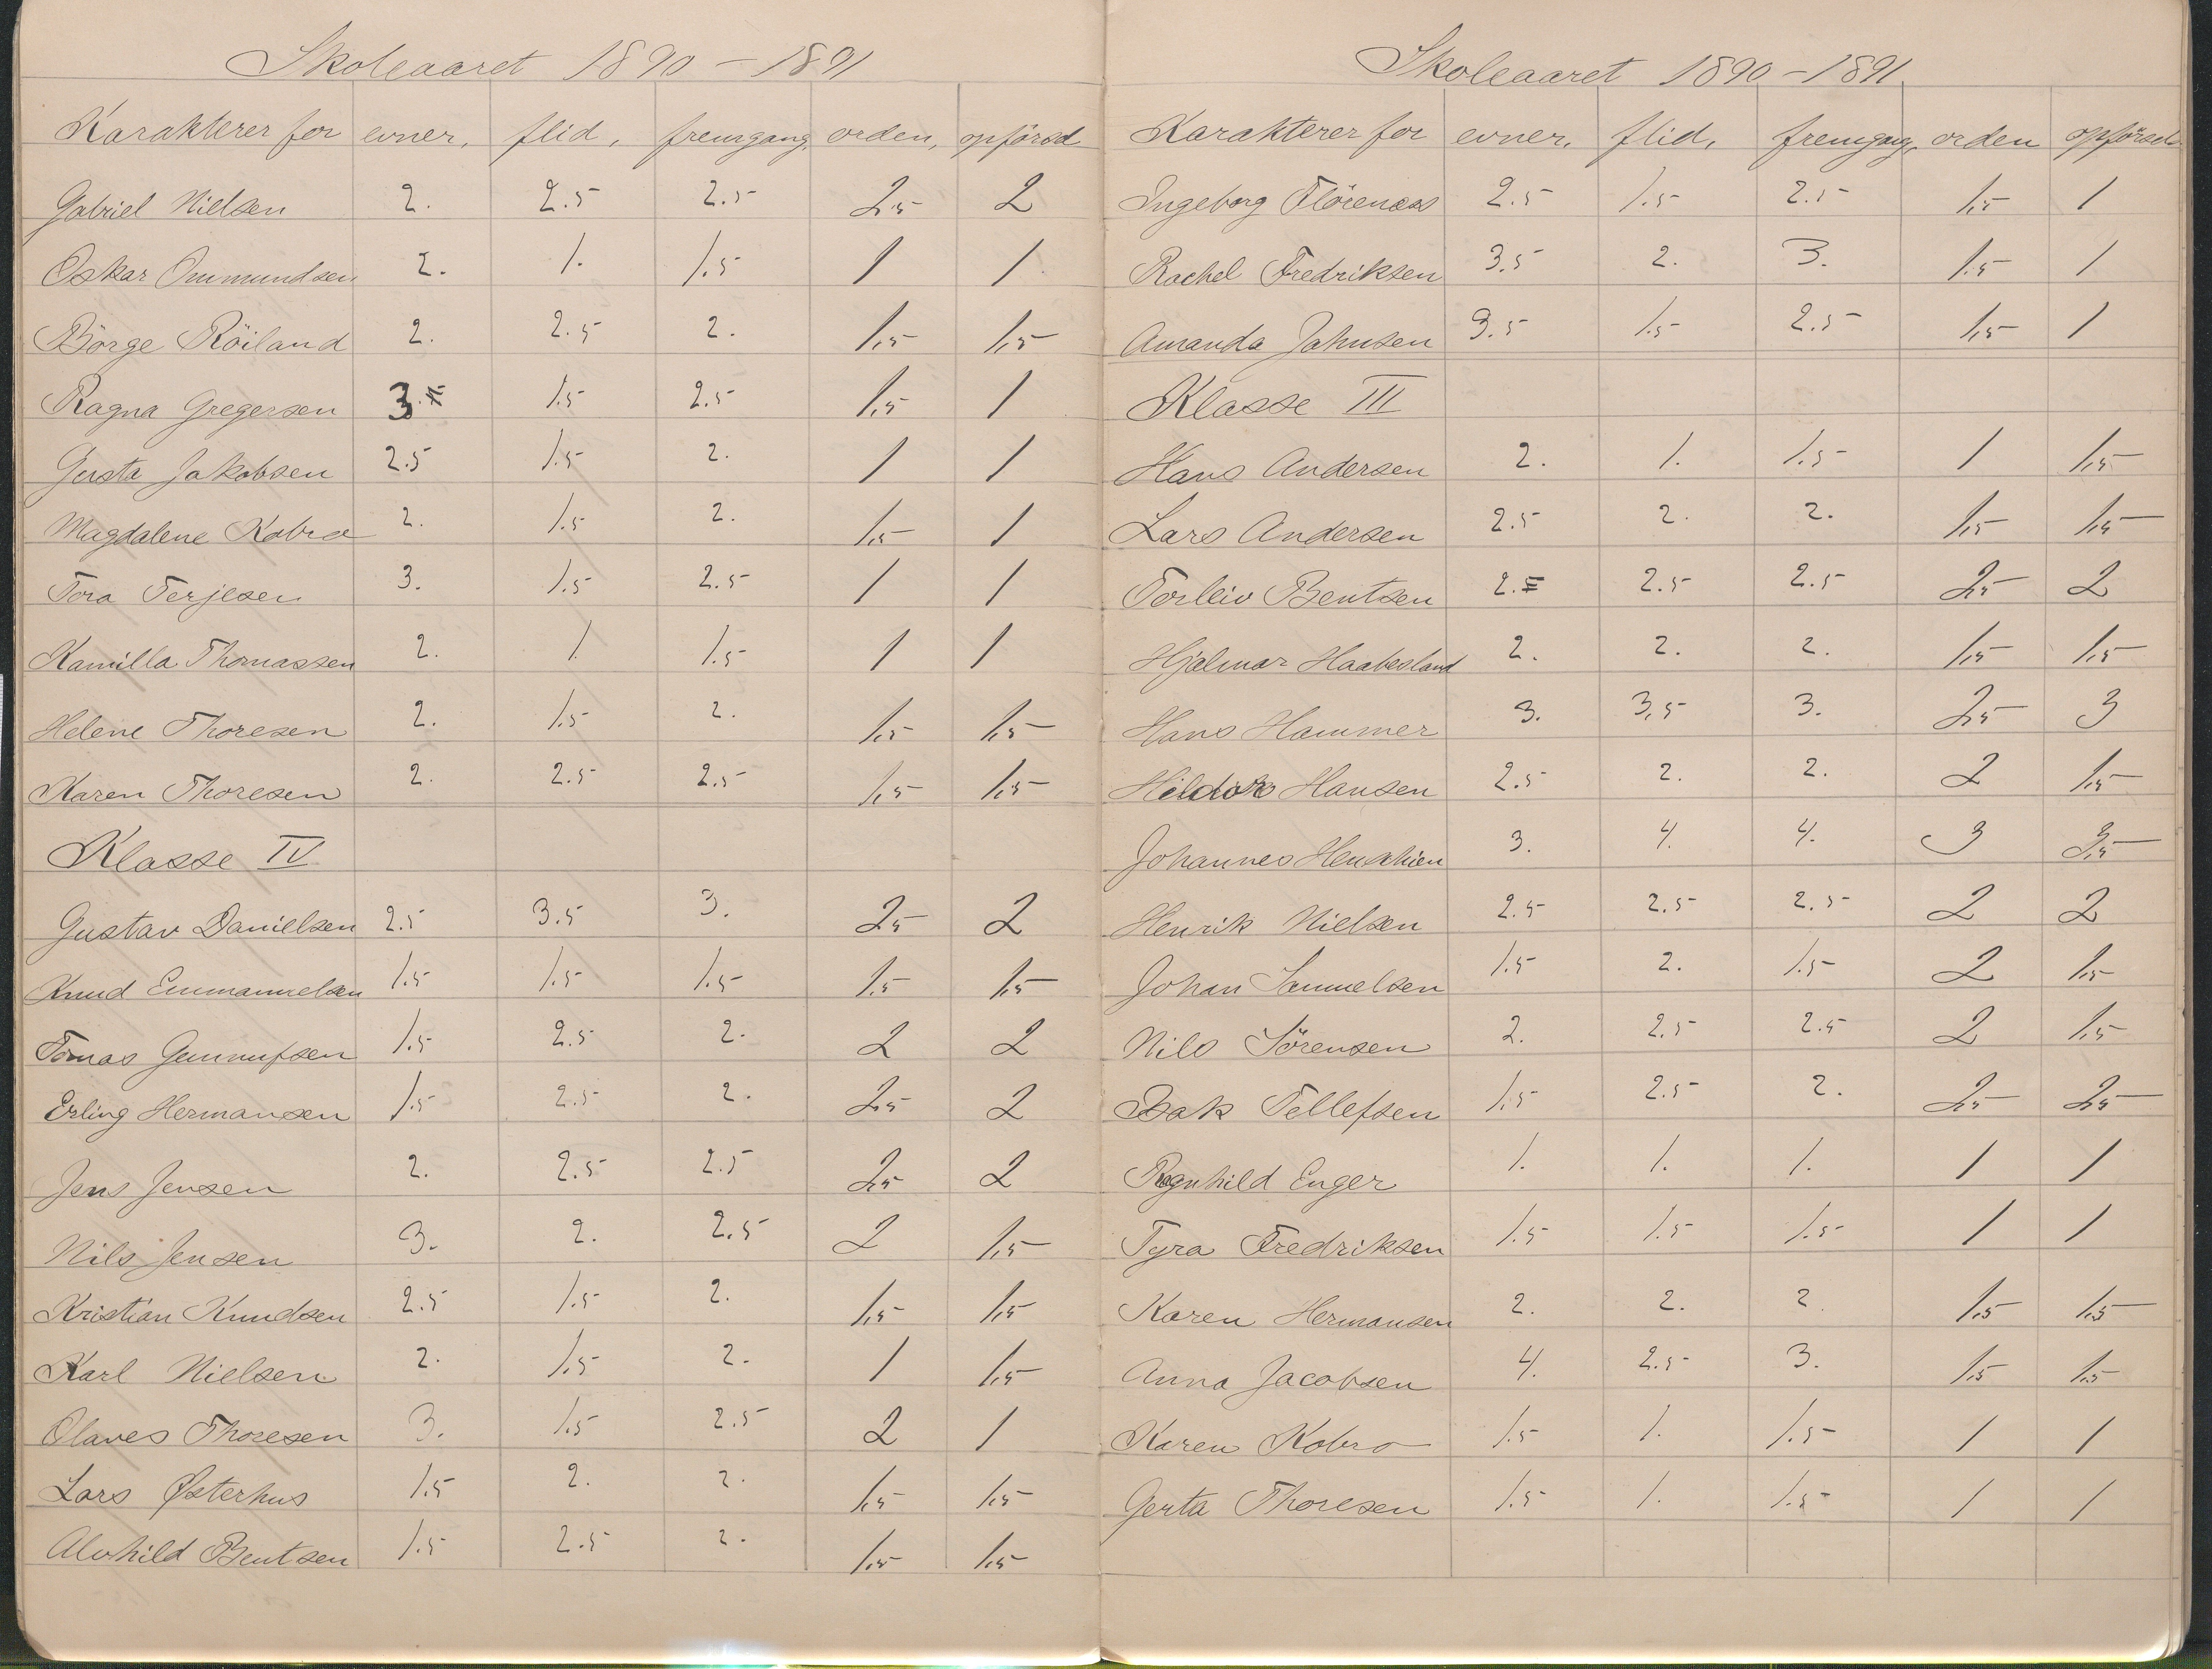 Skoleaaret 1890 - 1891
Karakterer for evner, flid, fremgang, orden, opförsel
Gabriel Nielsen 2. 2.5 2.5 2.5 2
Oskar Ommundsen 2. 1. 1.5 1 1
Börge Röiland 2. 2.5 2. 1,5 1,5
Ragna Gregersen 3. 1.5 2.5 1,5 1
Gusta Jakobsen 2.5 1.5 2. 1 1
Magdalene Kobro 2. 1.5 2. 1,5 1
Tora Terjesen 3. 1.5 2.5 1 1
Kamilla Thomassen 2. 1 1.5 1 1
Helene Thoresen 2. 1.5 2. 1,5 1,5
Karen Thoresen 2. 2.5 2.5 1,5 1,5
Klasse IV
Gustav Danielsen 2.5 3.5 3. 2,5 2
Knud Emmanuelsen 1.5 1.5 1.5 1.5 1,5
Tomas Gunnufsen 1.5 2.5 2. 2 2
Erling Hermansen 1.5 2.5 2. 2,5 2
Jens Jensen 2. 2.5 2.5 2,5 2
Nils Jensen 3. 2. 2.5 2 1,5
Kristian Knudsen 2.5 1.5 2. 1,5 1,5
Karl Nielsen 2. 1.5 2. 1 1,5
Olaves Thoresen 3. 1.5 2.5 2 1
Lars Østerhus 1.5 2. 2. 1,5 1,5
Alvhild Bentsen 1.5 2.5 2. 1,5 1,5
Skoleaaret 1890 - 1891
Karakterer for evner, flid, fremgang, orden opförsel
Ingeborg Flörenæs 2.5 1.5 2.5 1,5 1
Rachel Fredriksen 3.5 2. 3. 1.5 1
Amanda Jahnsen 3.5 1.5 2.5 1,5 1
Klasse III
Hans Andersen 2. 1. 1.5 1 1,5
Lars Andersen 2.5 2. 2. 1,5 1,5
Torleiv Bentsen 2. 2.5 2.5 2,5 2
Hjalmar Haabesland 2. 2. 2. 1,5 1,5
Hans Hammer 3. 3,5 3. 2,5 3
Hildor Hansen 2.5 2. 2. 2 1,5
Johannes 3. 4. 4. 3 3,5
Henrik Nielsen 2.5 2.5 2.5 2 2
Johan Samuelsen 1.5 2. 1.5 2 1,5
Nils Sörensen 2. 2.5 2.5 2 1,5
Isak Tellefsen 1.5 2.5 2. 2,5 2,5
Ragnhild Enger 1. 1. 1. 1 1
Tyra Fredriksen 1.5 1.5 1.5 1 1
Karen Hermansen 2. 2. 2 1,5 1,5
Anna Jacobsen 4. 2.5 3. 1,5 1,5
Karen Kobro 1.5 1. 1.5 1 1
Gerta Thoresen 1.5 1. 1.5 1 1